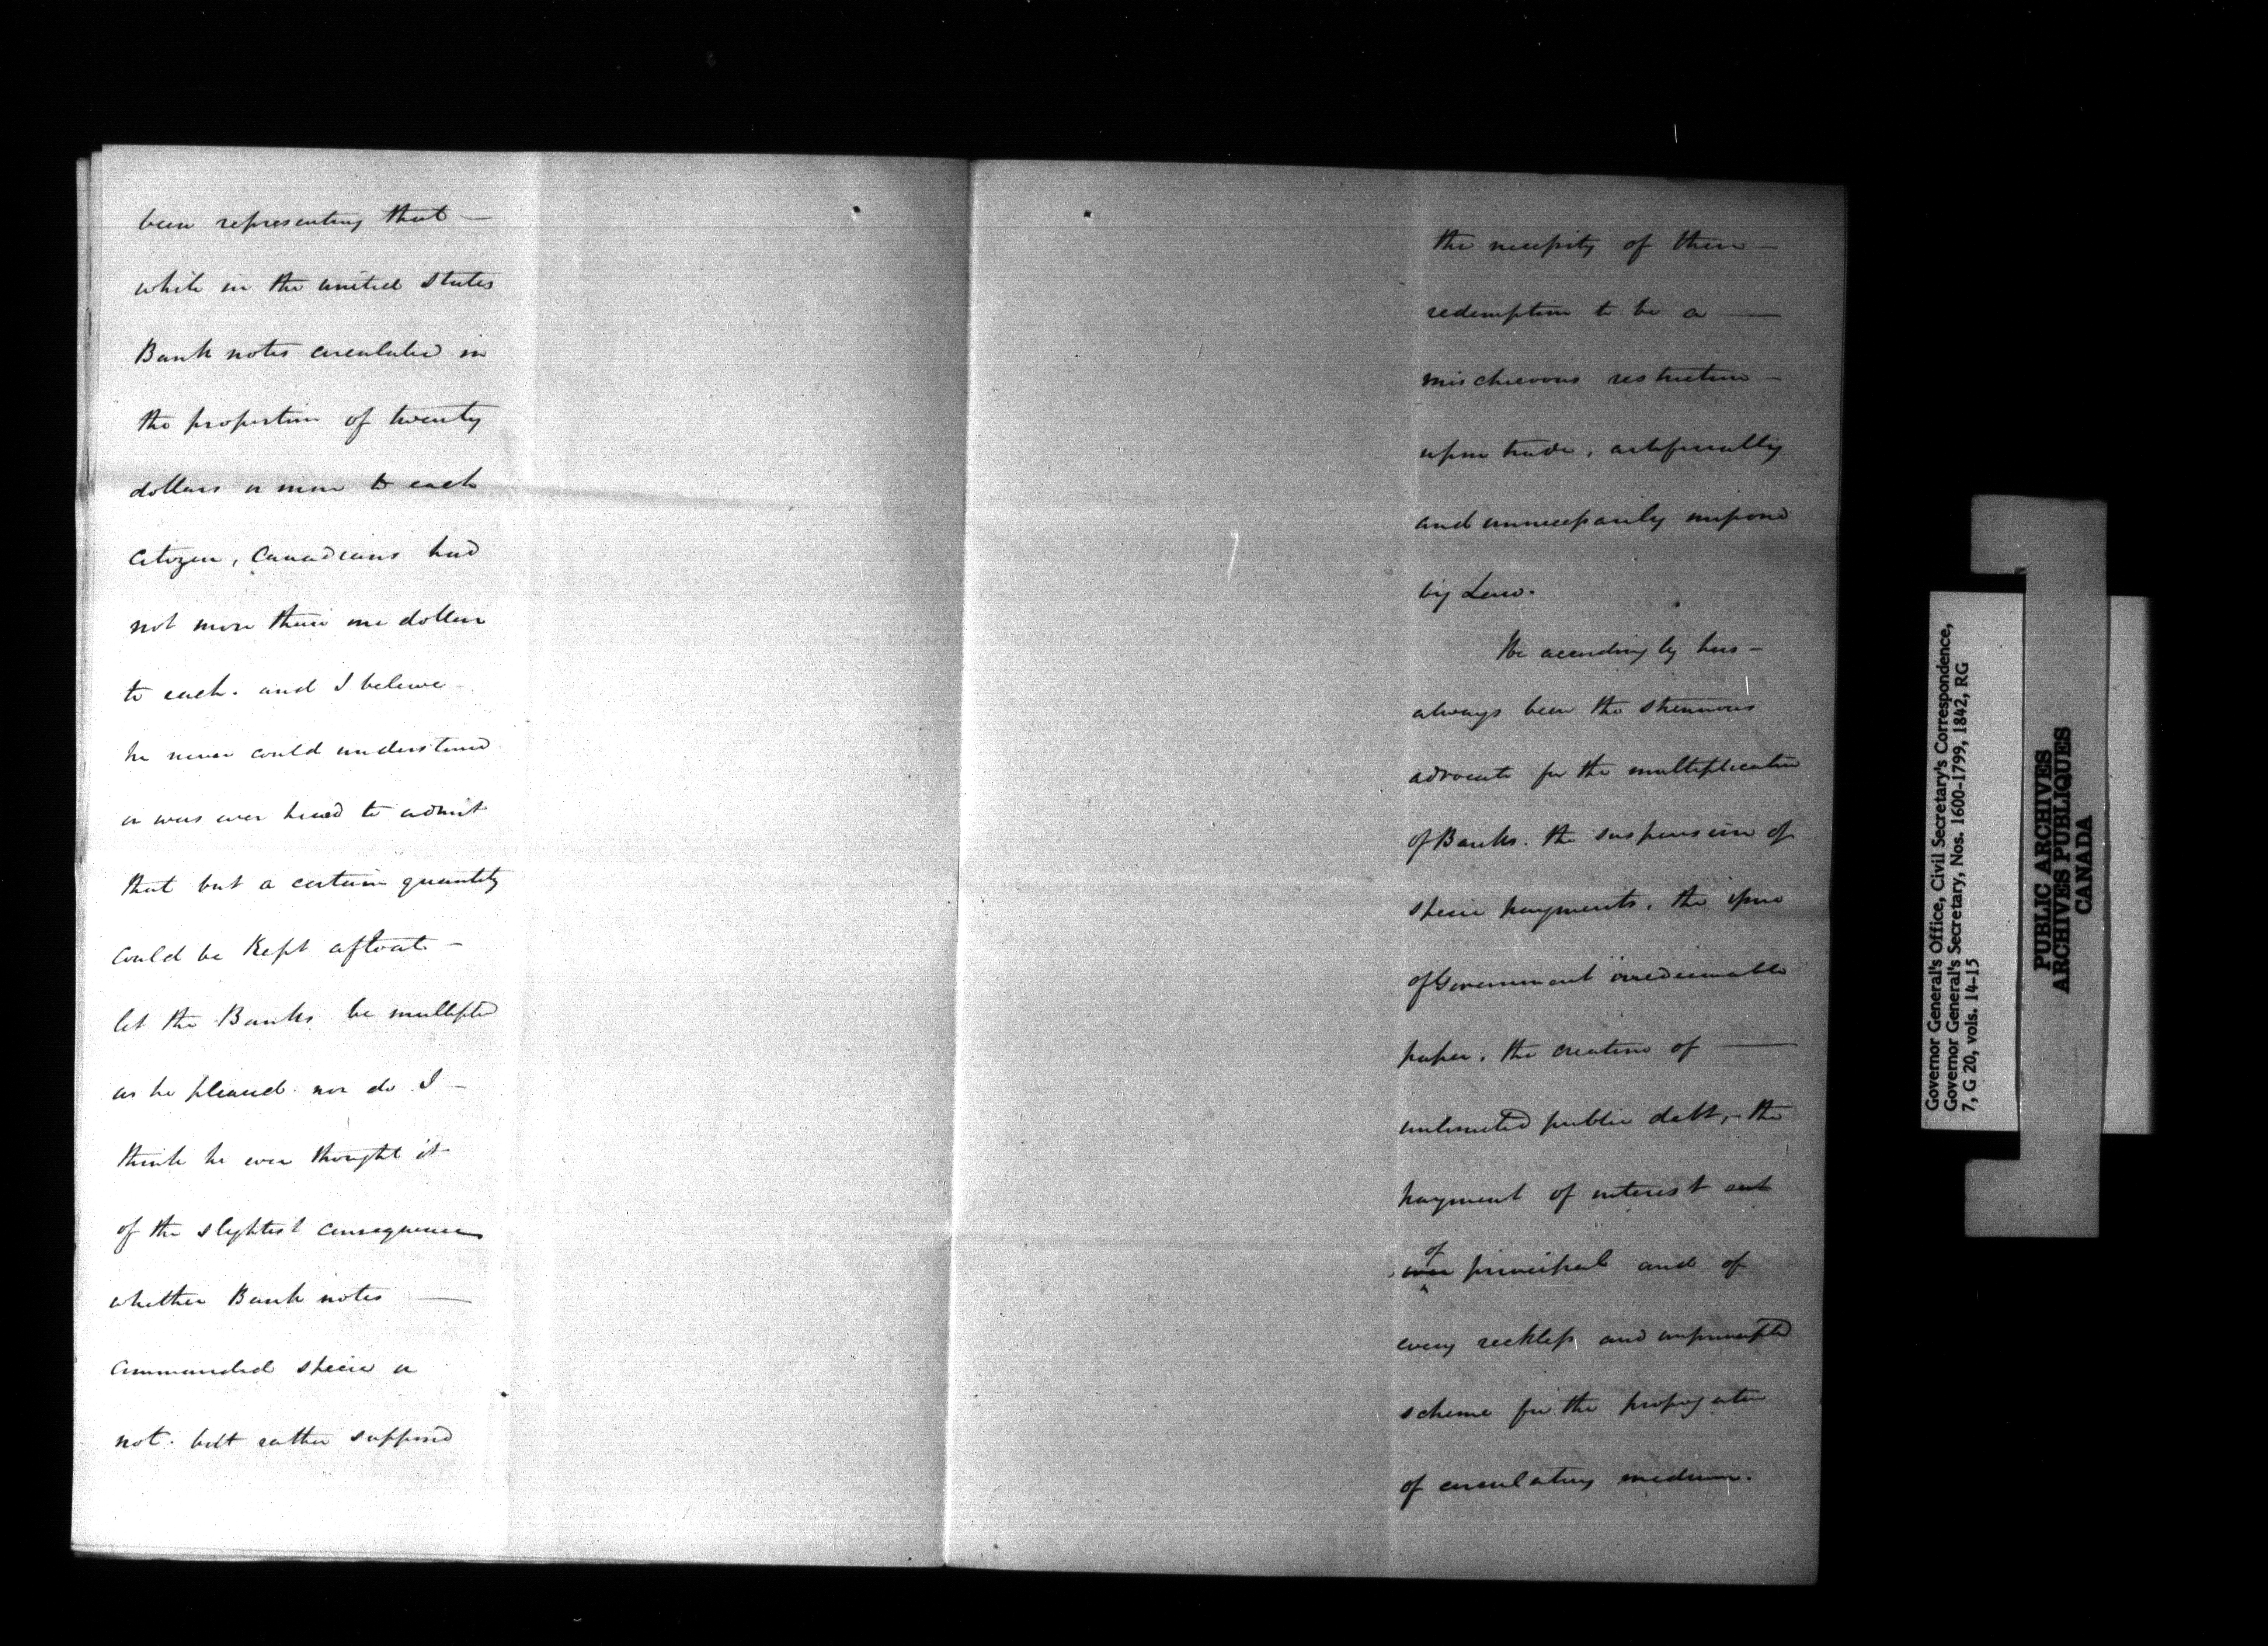 been representing that —
while in the united States
Bank notes circulated in
the proportion of twenty
dollars or more to each
citizen, Canadians had
not more than one dollar
to each. and I believe —
he never could understand
or was ever heard to admit
that but a certain quantity
could be kept afloat —
let the Banks be multiplied
as he pleased. nor do I —
think he ever thought it
of the slightest consequence
whether Bank notes —
commanded specie or
not. but rather supposed
the necessity of their —
redemption to be a —
mischievous restriction —
upon trade, artificially
and unnecessarily imposed
by Law.
He accordingly has —
always been the strenuous
advocate for the multiplication
of Banks. the suspension of
specie payments, the issue
of Government irredeemable
paper, the creation of —
unlimited public debt, — the
payment of interest out
of
over principal and of
every reckless and unprincipled
scheme for the propagation
of circulating medium.
Governor General's Office, Civil Secretary's Correspondence,
Governor General's Secretary, Nos. 1600-1799, 1842, RG
7, G 20, vols. 14-15
PUBLIC ARCHIVES
ARCHIVES PUBLIQUES
CANADA